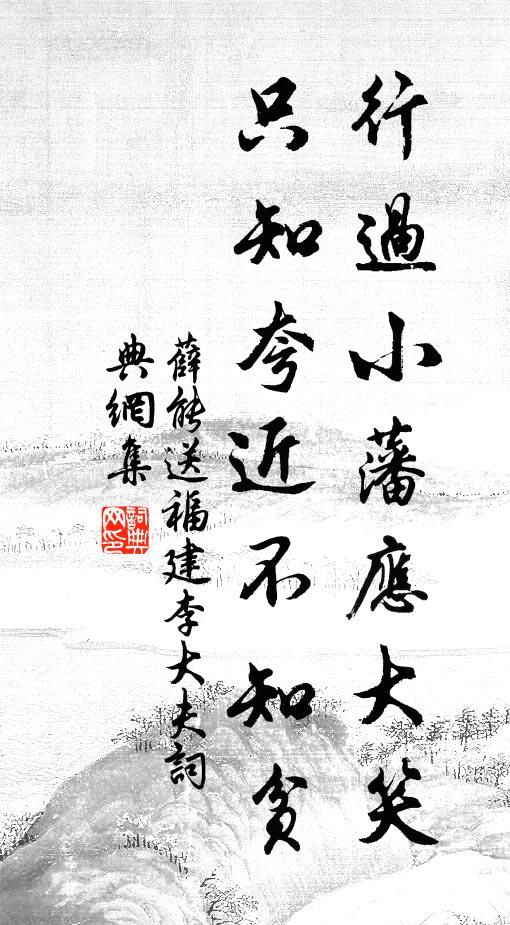 行過小藩應大笑
只知夸近不知貧
薛能送福建李大夫詞
典網集
詞典
网印